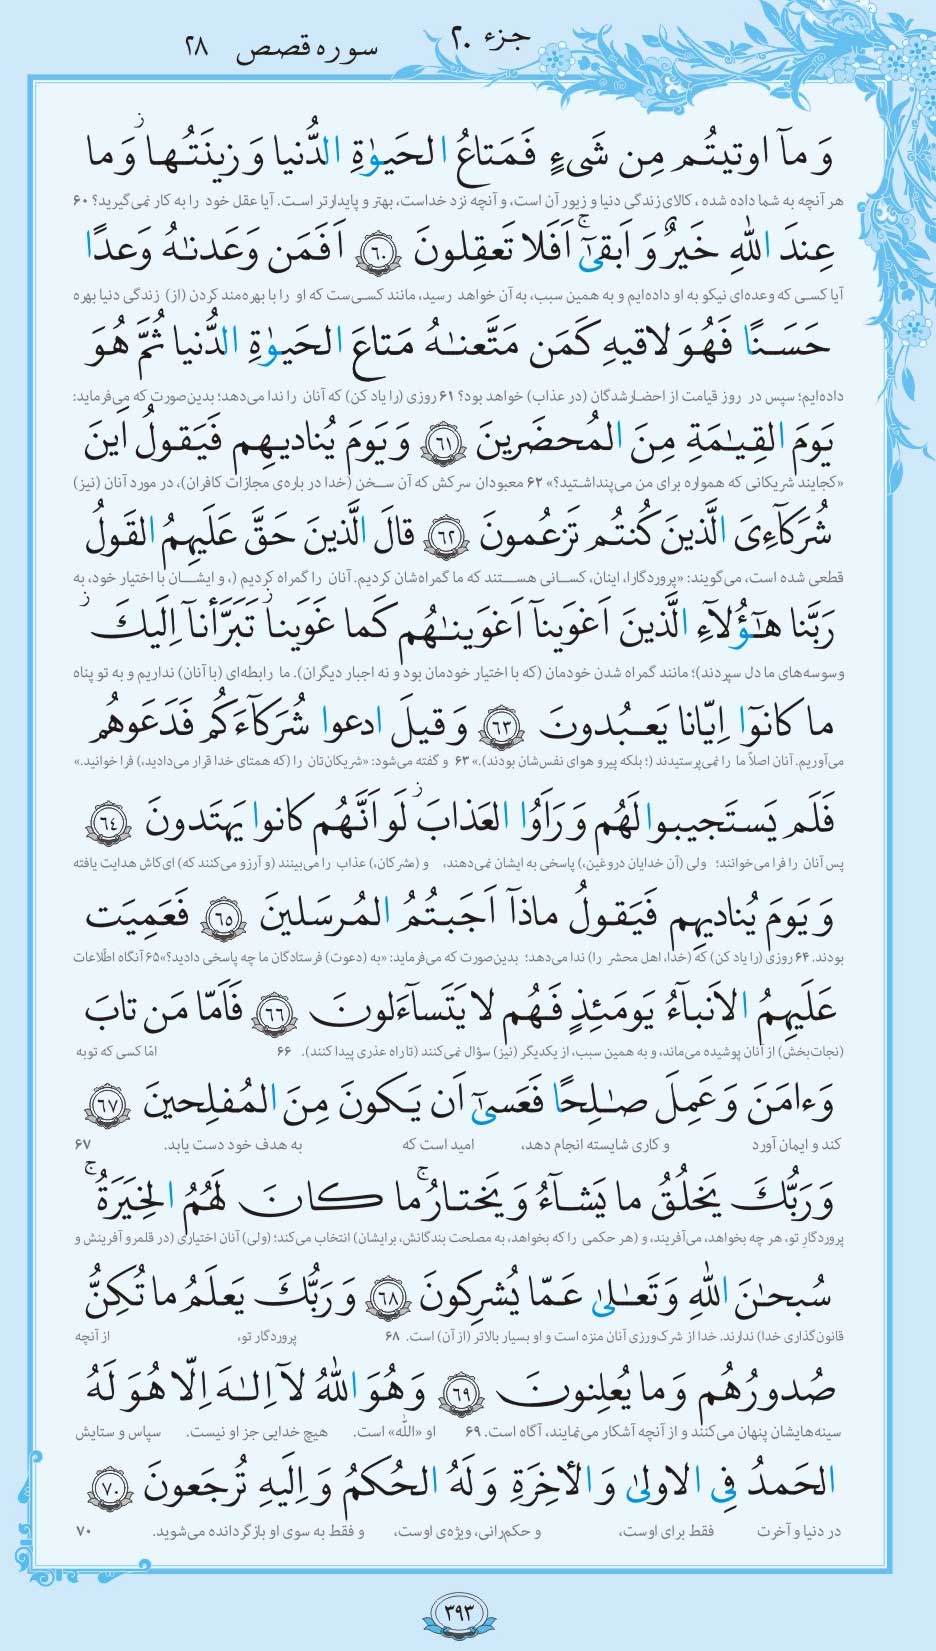 جزء ۲۰
سوره قصص ۲۸
وَ مآ اوتيتُم مِن شَیءٍ فَمَتاعُ الحَيوٰةِ الدُّنيا وَ زينَتُها ۚ وَ ما
هر آنچه به شما داده شده ، کالای زندگی دنیا و زیور آن است، و آنچه نزد خداست، بهتر و پایدارتر است. آیا عقل خود را به کار نمی‌گیرید؟ ۶۰
عِندَ اللهِ خَيرٌ وَ اَبقىٰٓ ۚ اَفَلا تَعقِلونَ ﴿٦٠﴾ اَفَمَن وَعَدنـٰهُ وَعدًا
آیا کسی که وعده‌ای نیکو به او داده‌ایم و به همین سبب، به آن خواهد رسید، مانند کسی‌ست که او را با بهره‌مند کردن (از) زندگی دنیا بهره
حَسَـنًا فَهُوَ لاقيهِ كَمَن مَتَّعنـٰهُ مَتاعَ الحَيوٰةِ الدُّنيا ثُمَّ هُوَ
داده‌ایم؛ سپس در روز قیامت از احضارشدگان (در عذاب) خواهد بود؟ ۶۱ روزی (را یاد کن) که آنان را ندا می‌دهد؛ بدین‌صورت که می‌فرماید:
يَومَ القِيـٰمَةِ مِنَ المُحضَرينَ ﴿٦١﴾ وَ يَومَ يُناديهِم فَيَقولُ اَينَ
«کجایند شریکانی که همواره برای من می‌پنداشتید؟» ۶۲ معبودان سرکش که آن سـخن (خدا در باره‌ی مجازات کافران)، در مورد آنان (نیز)
شُرَكآءِىَ الَّذينَ كُنتُم تَزعُمونَ ﴿٦٢﴾ قالَ الَّذينَ حَقَّ عَلَيهِمُ القَولُ
قطعی شده است، می‌گویند: «پروردگارا، اینان، کسـانی هسـتند که ما گمراه‌شان کردیم. آنان را گمراه کردیم (، و ایشـان با اختیار خود، به
رَبَّنا هـٰٓؤُلآءِ الَّذينَ اَغوَينآ اَغوَينـٰهُم كَما غَوَينا ۖ تَبَرَّأنآ اِلَيكَ ۖ
وسوسه‌های ما دل سپردند)؛ مانند گمراه شدن خودمان (که با اختیار خودمان بود و نه اجبار دیگران). ما رابطه‌ای (با آنان) نداریم و به تو پناه
ما كانوٓا اِيّانا يَعـبُدونَ ﴿٦٣﴾ وَ قيلَ ادعوا شُرَكآءَكُم فَدَعَوهُم
می‌آوریم. آنان اصلاً ما را نمی‌پرستیدند (؛ بلکه پیرو هوای نفس‌شان بودند).» ۶۳ و گفته می‌شود: «شریکان‌تان را (که همتای خدا قرار می‌دادید،) فرا خوانید.»
فَلَم يَستَجيبوا لَهُم وَ رَاَوُا العَذابَ ۚ لَو اَنَّهُم كانوا يَهتَدونَ ﴿٦٤﴾
پس آنان را فرا می‌خوانند؛ ولی (آن خدایان دروغین،) پاسخی به ایشان نمی‌دهند، و (مشرکان،) عذاب را می‌بینند (و آرزو می‌کنند که) ای‌کاش هدایت یافته
وَ يَومَ يُناديهِم فَيَقولُ ماذآ اَجَبتُمُ المُرسَلينَ ﴿٦٥﴾ فَعَمِيَت
بودند. ۶۴ روزی (را یاد کن) که (خدا، اهل محشر را) ندا می‌دهد؛ بدین‌صورت که می‌فرماید: «به (دعوت) فرستادگان ما چه پاسخی دادید؟» ۶۵ آنگاه اطّلاعات
عَلَيهِمُ الاَنبآءُ يَومَئِذٍ فَهُم لا يَتَسآءَلونَ ﴿٦٦﴾ فَاَمّا مَن تابَ
(نجات‌بخش) از آنان پوشیده می‌ماند، و به همین سبب، از یکدیگر (نیز) سؤال نمی‌کنند (تا راه عذری پیدا کنند). ۶۶ امّا کسی که توبه
وَ ءامَنَ وَ عَمِلَ صـٰلِحًا فَعَسىٰٓ اَن يَكونَ مِنَ المُفلِحينَ ﴿٦٧﴾
کند و ایمان آورد و کاری شایسته انجام دهد، امید است که به هدف خود دست یابد. ۶۷
وَ رَبُّكَ يَخلُقُ ما يَشآءُ وَ يَختارُ ۗ ما كانَ لَهُمُ الخِيَرَةُ ۚ
پروردگارِ تو، هر چه بخواهد، می‌آفریند، و (هر حکمی را که بخواهد، به مصلحت بندگانش، برایشان) انتخاب می‌کند؛ (ولی) آنان اختیاری (در قلمرو آفرینش و
سُبحـٰنَ اللهِ وَ تَعـٰلىٰ عَمّا يُشرِكونَ ﴿٦٨﴾ وَ رَبُّكَ يَعلَمُ ما تُكِنُّ
قانون‌گذاری خدا) ندارند. خدا از شرک‌ورزی آنان منزه است و او بسیار بالاتر (از آن) است. ۶۸ پروردگار تو، از آنچه
صُدورُهُم وَ ما يُعلِنونَ ﴿٦٩﴾ وَ هُوَ اللهُ لآ اِلـٰهَ اِلّا هُوَ لَهُ
سینه‌هایشان پنهان می‌کنند و از آنچه آشکار می‌نمایند، آگاه است. ۶۹ او «الله» است. هیچ خدایی جز او نیست. سپاس و ستایش
الحَمدُ فِی الاولىٰ وَ الأخِرَةِ وَ لَهُ الحُكمُ وَ اِلَيهِ تُرجَعونَ ﴿٧٠﴾
در دنیا و آخرت فقط برای اوست، و حکم‌رانی، ویژه‌ی اوست، و فقط به سوی او بازگردانده می‌شوید. ۷۰
۳۹۳